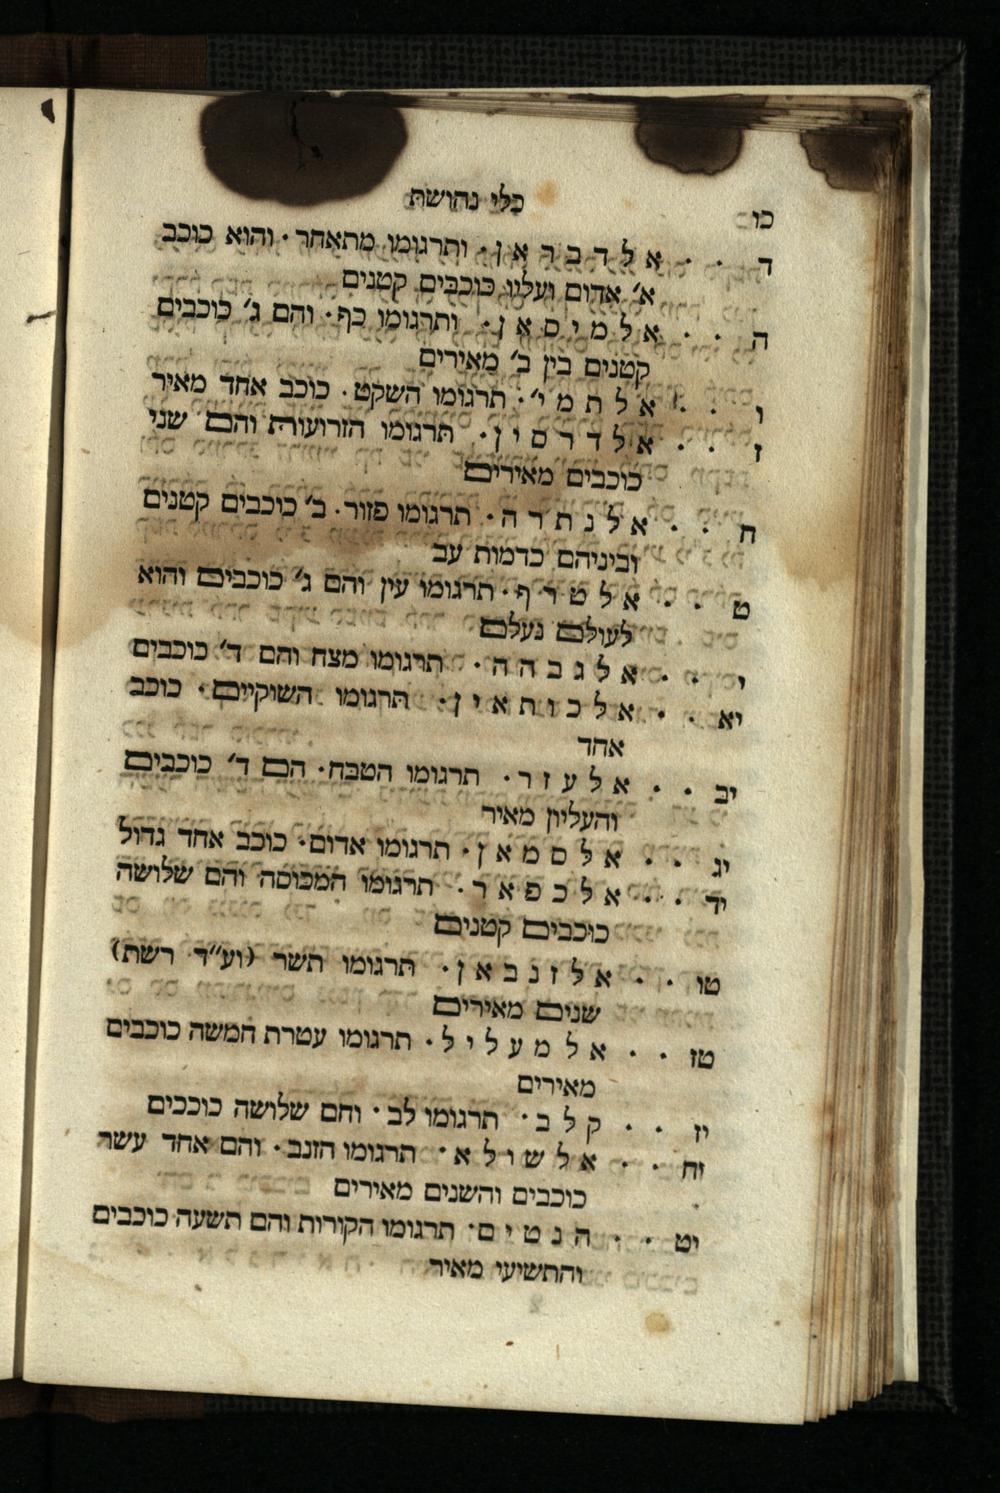 כו כלי נחושת
ד · · אלדבראן · ותרגומו מתאחר · והוא כוכב
א׳ אדום ועליו כוכבים קטנים
ה · · אלמיסאן · ותרגומו כף · והם ג׳ כוכבים
קטנים בין ב׳ מאירים
ו · · אלתמי׳ · תרגומו השקט · כוכב אחד מאיר
ז · · אלדרסין · תרגומו הזרועות והם שני
כוכבים מאירים
ח · · אלנתרה · תרגומו פזור · ב׳ כוכבים קטנים
וביניהם כדמות עב
ט · · אלטרף · תרגומו עין והם ג׳ כוכבים והוא
לעולם נעלם
י · · אלגבהה · תרגומו מצח והם ד׳ כוכבים
יא · · אלכותאין · תרגומו השוקיים · כוכב
אחד
יב · · אלעזר · תרגומו הטבח · הם ד׳ כוכבים
והעליון מאיר
יג · · אלסמאן · תרגומו אדום · כוכב אחד גדול
יד · · אלכפאר · תרגומו המכוסה והם שלושה
כוכבים קטנים
טו · · אלזנבאן · תרגומו תשר (וע״ד רשת)
שנים מאירים
טז · · אלמעליל · תרגומו עטרת חמשה כוכבים
מאירים
יז · · קלב · תרגומו לב · והם שלושה כוכבים
יח · · אלשולא · תרגומו הזנב · והם אחד עשר
כוכבים והשנים מאירים
יט · · הנטים · תרגומו הקורות והם תשעה כוכבים
והתשיעי מאיר